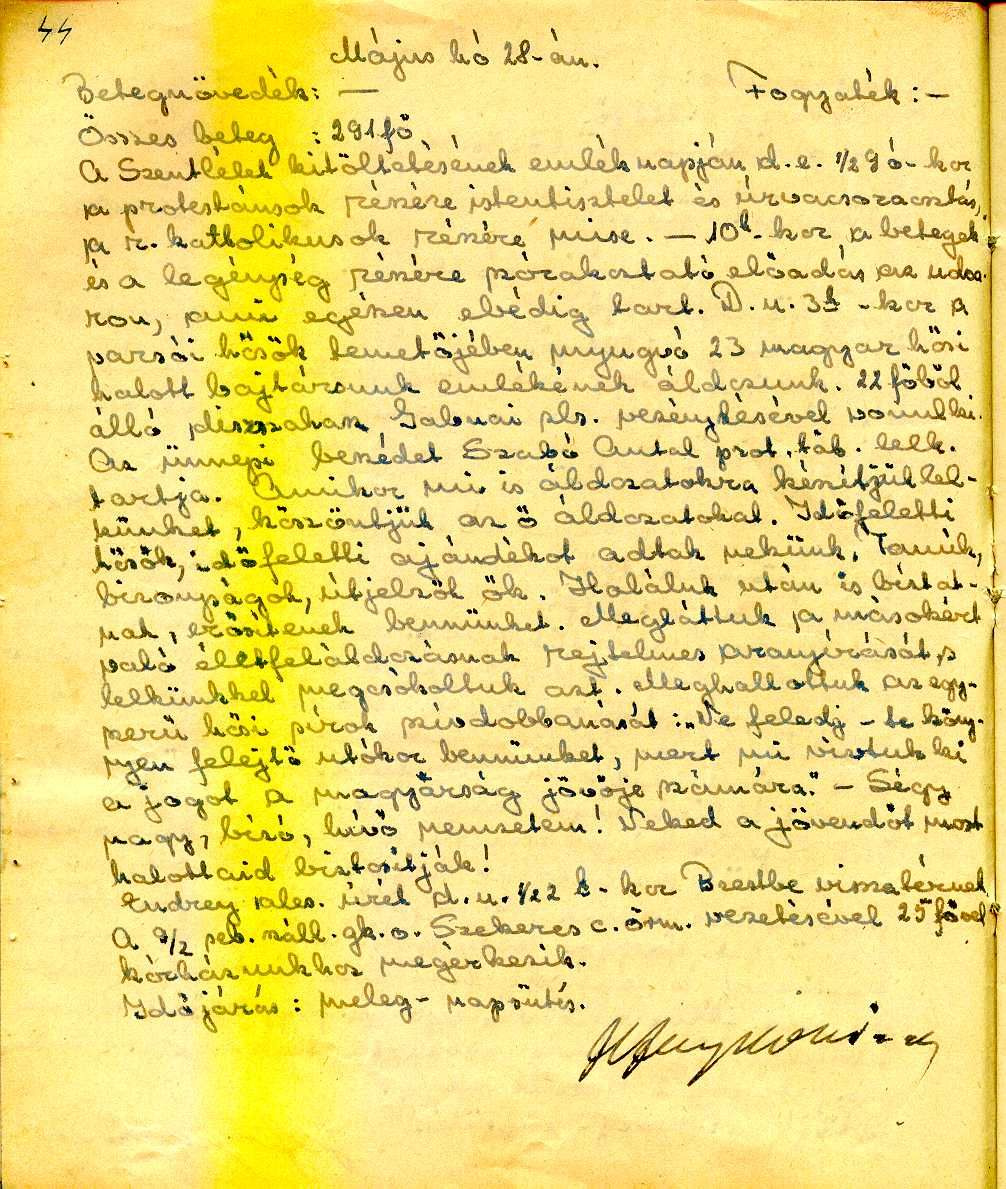 44
Május hó 28-án.
Betegnövedék: — Fogyaték: -
Összes beteg : 291 fő
A Szentlélek kitöltetésének emléknapján d.e. 1/2 9 ó-kor
a protestánsok részére istentisztelet és úrvacsoraosztás,
a r. katholikusok részére mise. — 10h-kor a betegek
és a legénység részére szórakoztató előadás az udva-
ron, ami egészen ebédig tart. D.u. 3h-kor a
varsói hősök temetőjében nyugvó 23 magyar hősi
halott bajtársunk emlékének áldozunk. 22 főből
álló díszszakasz Galsai zls. vezénylésével vonul ki.
Az ünnepi beszédet Szabó Antal prot. táb. lelk.
tartja. Amikor mi is áldozatokra készítjük lel-
künket, köszöntjük az ő áldozatokat. Időfeletti
hősök, időfeletti ajándékot adtak nekünk. Tanúk,
bizonyságok, útjelzők ők. Haláluk után is bíztat-
nak, erősítenek bennünket. Megláttuk a másokért
való életfeláldozásnak rejtelmes aranyírását, s
lelkünkkel megcsókoltuk azt. Meghallottuk az egy-
szerű hősi sírok szívdobbanását: "Ne feledj - te köny-
nyen felejtő utókor bennünket, mert mi vívtuk ki
a jogot a magyarság jövője számára." - Ségy
nagy, bízó, hívő nemzetem! Neked a jövendőt most
halottaid biztosítják!
Endrey d.u. 1/2 2 h-kor Brestbe visszatérnek
A 9/2 seb. száll. gk. o. Szekeres c. őrm. vezetésével 25 fővel
kórházunkhoz megérkezik.
Időjárás: meleg - napsütés.